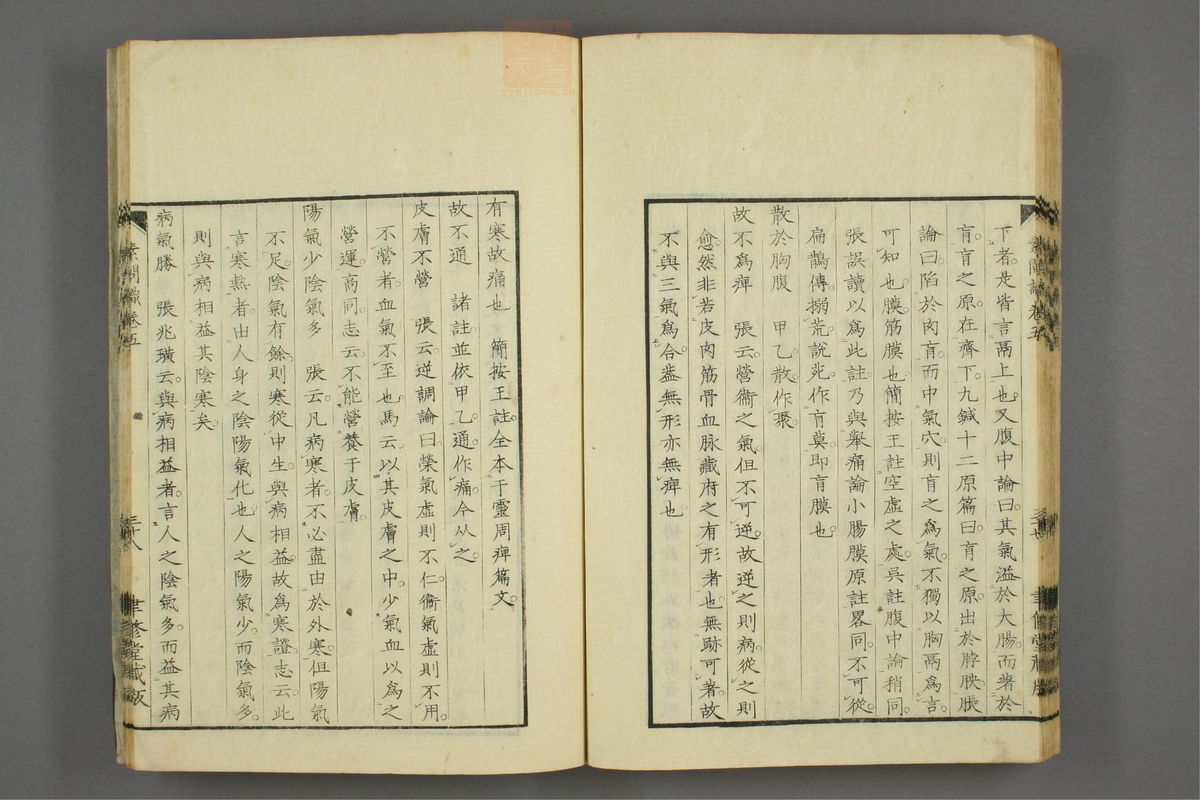 下者是皆言鬲上也又腹中論曰其氣溢於大腸而著於
肓肓之原在齊下九鍼十二原篇曰肓之原出於脖胦脹
論曰陷於肉肓而中氣穴則肓之爲氣不獨以胸鬲爲言
可知也膜筋膜也簡按王註空虛之處吳註腹中論稍同
張誤讀以爲此註乃與舉痛論小腸膜原註畧同不可從
扁鵲傳搦荒說苑作肓莫即肓膜也
散於胸腹 甲乙散作聚
故不爲痺 張云營衞之氣但不可逆故逆之則病從之則
愈然非若皮肉筋骨血脉藏府之有形者也無跡可著故
不與三氣爲合葢無形亦無痺也
素問識卷五
有寒故痛也 簡按王註全本于靈周痺篇文
故不通 諸註並依甲乙通作痛今从之
皮膚不營 張云逆調論曰榮氣虛則不仁衞氣虛則不用
不營者血氣不至也馬云以其皮膚之中少氣血以爲之
營運高同志云不能營養于皮膚
陽氣少陰氣多 張云凡病寒者不必盡由於外寒但陽氣
不足陰氣有餘則寒從中生與病相益故爲寒證志云此
言寒熱者由人身之陰陽氣化也人之陽氣少而陰氣多
則與病相益其陰寒矣
病氣勝 張兆璜云與病相益者言人之陰氣多而益其病
素問識卷五 三十八 聿修堂藏板
zysj.com.cn